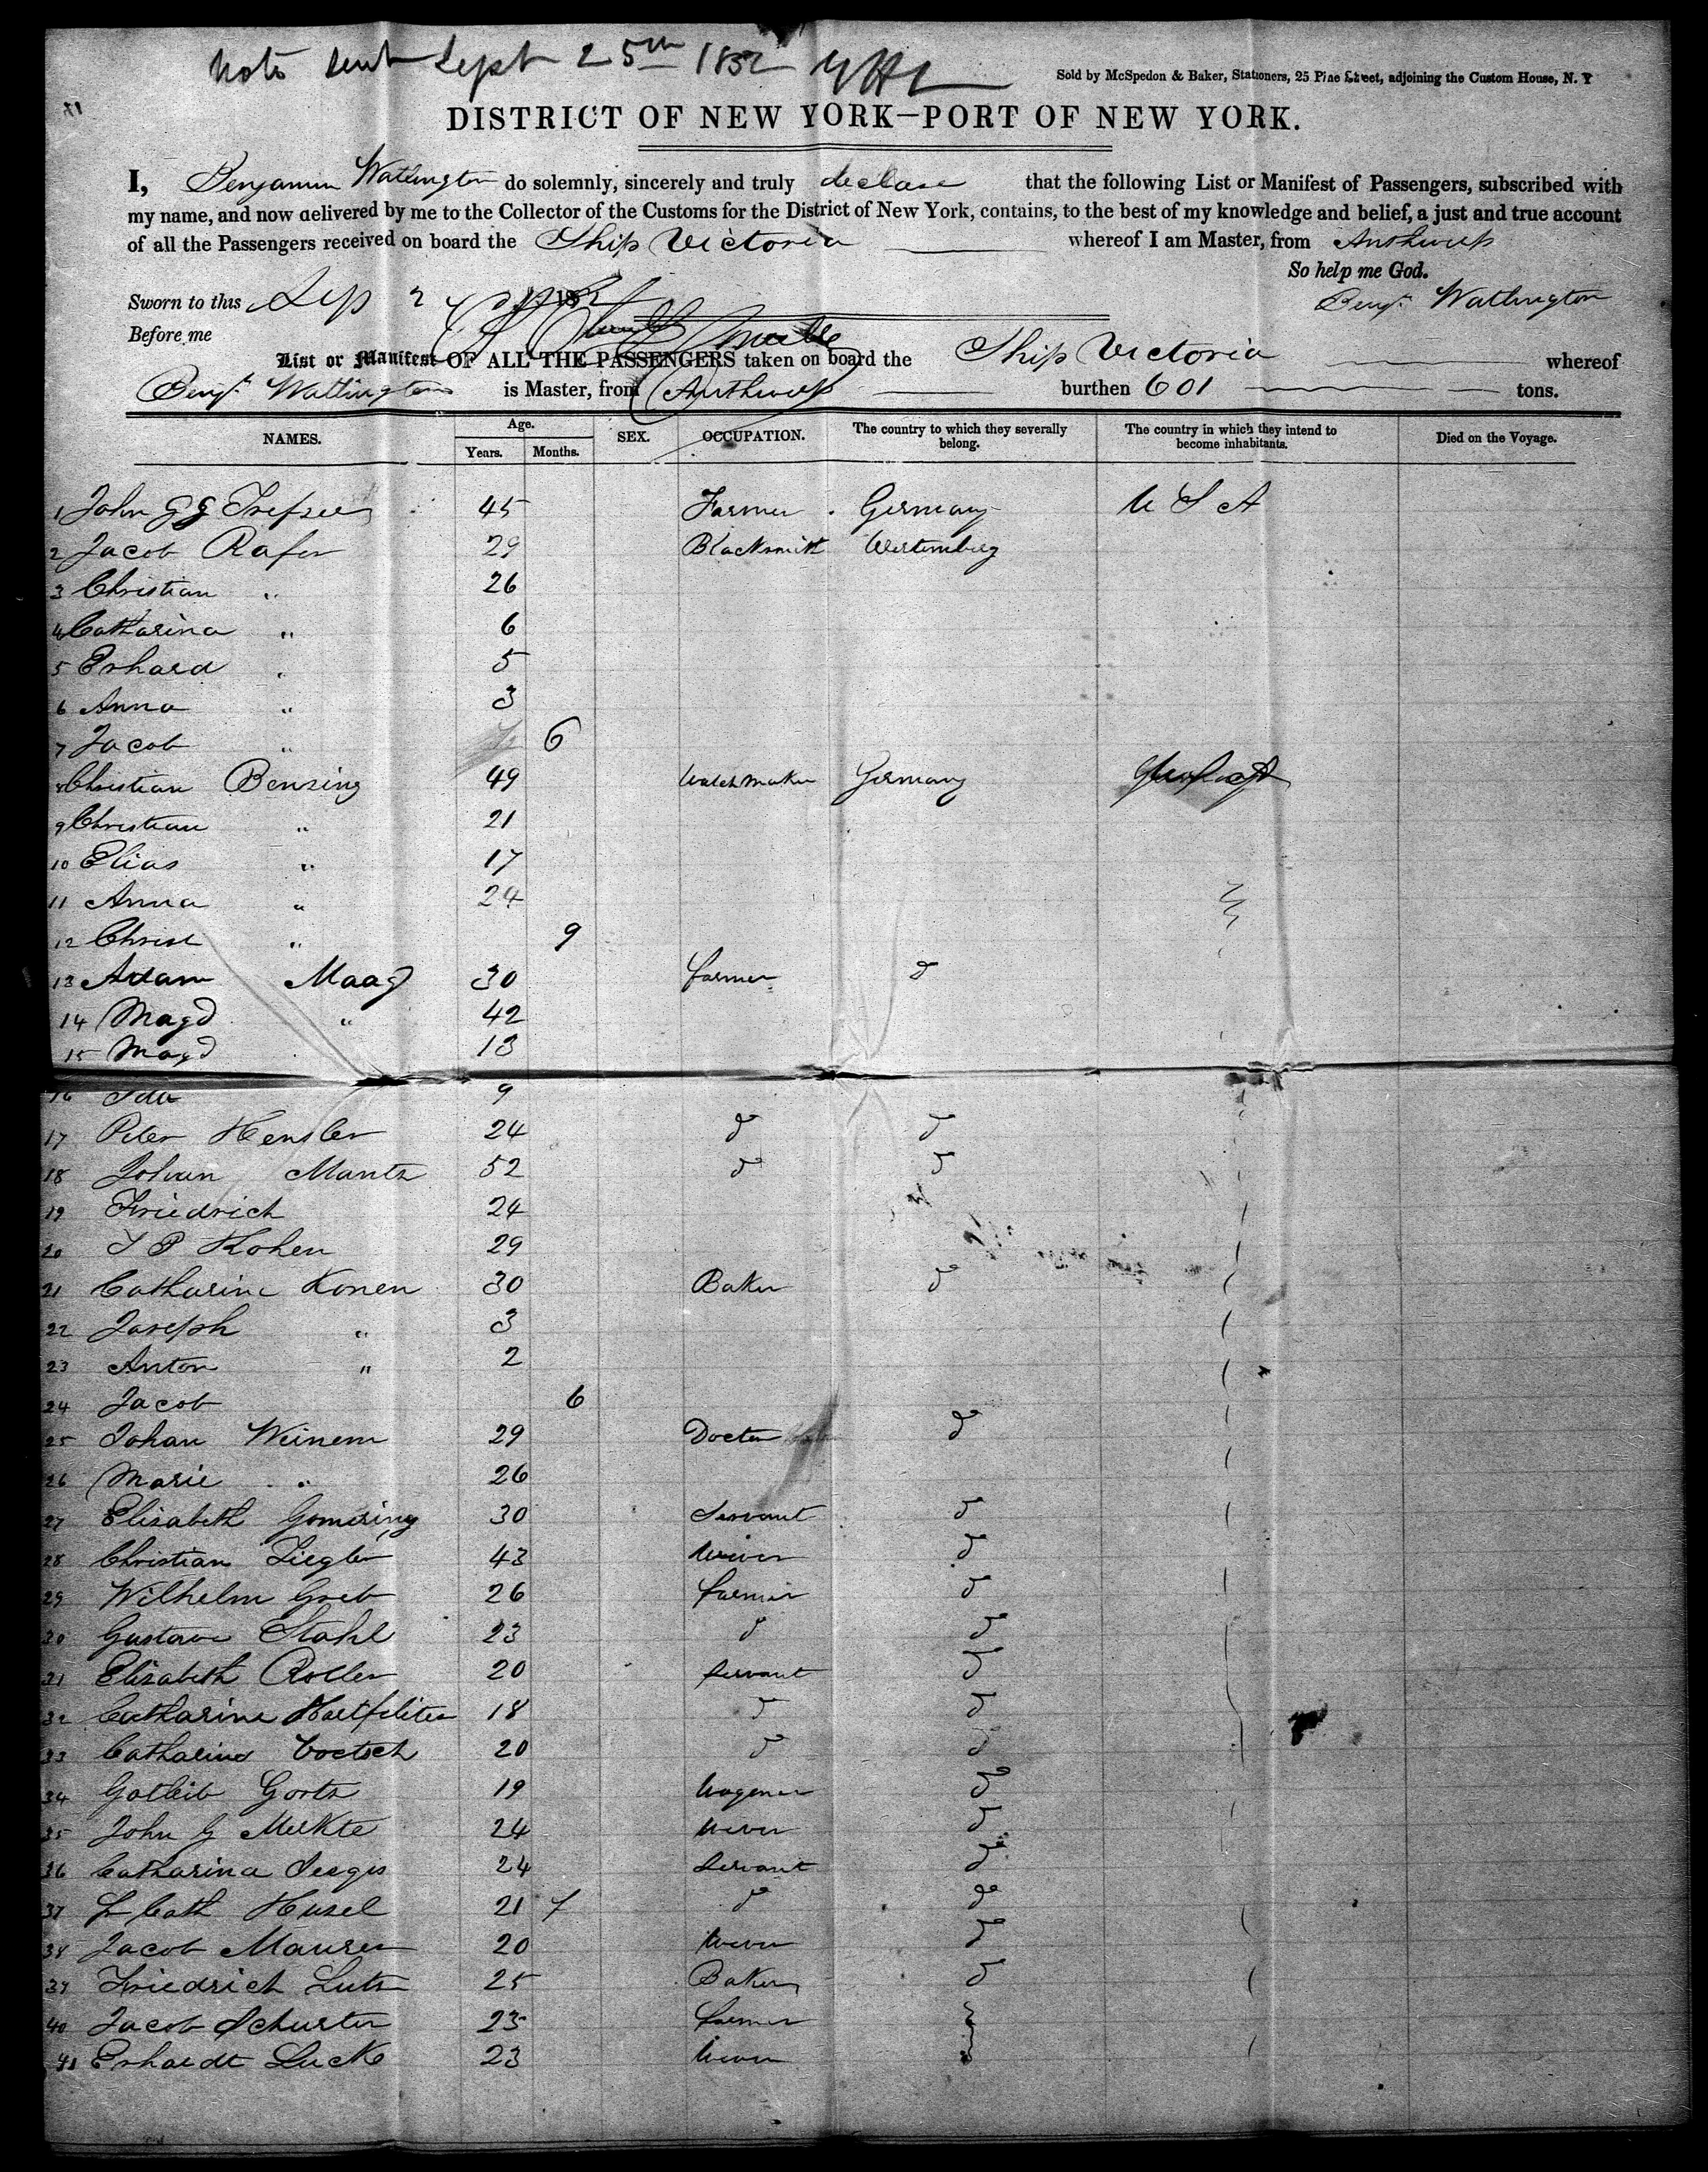 Note sent Sept 25th 1852
Sold by McSpedon & Baker, Stationers, 25 Pine Street, adjoining the Custom House, N. Y
DISTRICT OF NEW YORK—PORT OF NEW YORK.
I, Benjamin Watlington do solemnly, sincerely and truly declare that the following List or Manifest of Passengers, subscribed with
my name, and now delivered by me to the Collector of the Customs for the District of New York, contains, to the best of my knowledge and belief, a just and true account
of all the Passengers received on board the Ship Victoria whereof I am Master, from Anthwerp
So help me God.
Sworn to this Sep 2 185 Benj. Watlington
Before me
List or Manifest OF ALL THE PASSENGERS taken on board the Ship Victoria whereof
Benj. Watlington is Master, from Anthwerp burthen 601 tons.
NAMES. Age. Years. Months. SEX. OCCUPATION. The country to which they severally belong. The country in which they intend to become inhabitants. Died on the Voyage.
1 John G G 45 Farmer Germany U S A
2 Jacob Rafer 29 Blacksmith Wertemberg
3 Christian " 26
4 Catharina " 6
5 Erhard " 5
6 Anna " 3
7 Jacob " 6
8 Christian Benzing 49 Watchmaker Germany
9 Christian " 21
10 Elias " 17
11 Anna " 24
12 Christ " 9
13 Adam Maag 30 farmer d
14 Magd " 42
15 Magd 13
16 Ida 9
17 Peter Hensler 24 d d
18 Johan Mantz 52 d d
19 Friedrich 24
20 J P Kohen 29
21 Catharine Konen 30 Baker d
22 Joseph " 3
23 Anton " 2
24 Jacob 6
25 Johan Weinem 29 Docter d
26 Marie " 26
27 Elisabeth Gomering 30 Servant d
28 Christian Ziegler 43 Wever d
29 Wilhelm Greb 26 farmer d
30 Gustave Stahl 23 d d
31 Elisabeth Roller 20 servant d
32 Catharine 18 d d
33 Catharine Voetsch 20 d d
34 Gotleib Gortz 19 Wagener d
35 John G Merkte 24 Wever d
36 Catharina Seegis 24 servant d
37 Cath Husel 21 7 d d
38 Jacob Maurer 20 Wever d
39 Friedrich Lutz 25 Baker d
40 Jacob Schuster 23 farmer
41 Erhardt Luck 23 Wever